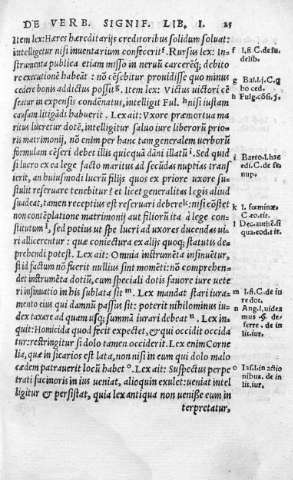 DE VERB. SIGNIF. LIB. I. 25
Item lex: Hæres hæreditarijs creditoribus solidum soluat:
intelligetur nisi inuentarium confecerit f. Rursus lex: In-
strumenta publica etiam misso in neruū carceréq; debito
re executionē habeāt: nō cēsebitur prouidisse quo minus
cedere bonis addictus possit g. Item lex: Victus uictori cē
seatur in expensis condēnatus, intelligit Ful. h nisi iustam
causam litigādi habuerit. Lex ait: Vxore præmortua ma
ritus lucretur dotē, intelligitur saluo iure liberorū prio-
ris matrimonij, nō enim per hanc tam generalem uerborū
formulam cēseri debet illis quicquā dāni illatū i. Sed quid
si lucro ex ea lege facto maritus ad secundas nuptias trans
ierit, an huiusmodi lucrū filijs quos ex priore uxore su-
stulit reseruare tenebitur? et licet generalitas legis aliud
suadeat, tamen receptius est reseruari debere k: nisi cōstet
non contēplatione matrimonij aut filiorū ita à lege con-
stitutum l, sed potius ut spe lucri ad uxores ducendas ui-
ri allicerentur: quæ coniectura ex alijs quoq; statutis de-
prehendi potest. Lex ait: Omnia instrumēta insinuētur,
si id factum nō fuerit nullius sint momēti: nō comprehen-
det instrumēta dotiū, cum speciali dotis fauore iure uete
ri insinuatio in his sublata sit m. Lex mandat stari iura-
mento eius qui damnū passus sit: poterit nihilominus iu-
dex taxare ad quam usq; summā iurari debeat n. Lex in-
quit: Homicida quod fecit expectet, & qui occidit occida
tur: restringitur si dolo tamen occiderit. Lex enim Corne
lia, quæ in sicarios est lata, non nisi in eum qui dolo malo
cædem patrauerit locū habet o. Lex ait: Suspectus perpe
trati facinoris in ius ueniat, alioquin exulet: ueniat intel
ligitur & persistat, quia lex antiqua non uenisse eum in
terpretatur,
f l. fi C. de iu.
delib.
g Bal. l. j. C. q
bo ced.
h Fulg. cōsi. j.
k l. fœminæ
C. eo. tit.
m l. fi. C. de iu
re dot.